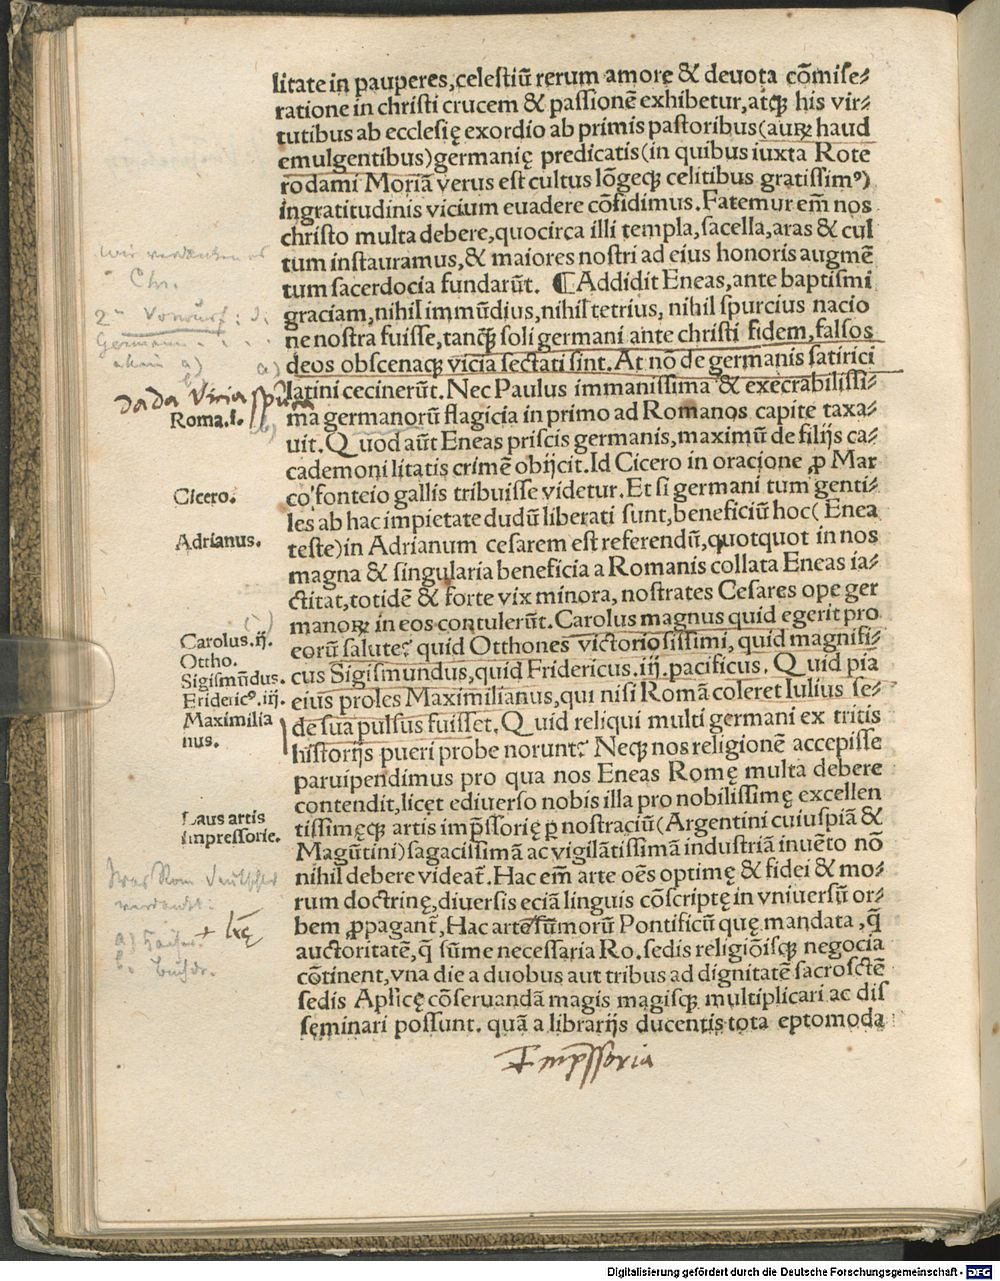 litate in pauperes,celestiũ rerum amore & deuota cõmise⸗
ratione in christi crucem & passionẽ exhibetur,atq̃ his vir⸗
tutibus ab ecclesię exordio ab primis pastoribus(auꝝ haud
emulgentibus)germanię predicatis(in quibus iuxta Rote
rodami Moriã verus est cultus lõgeq̃ celitibus gratissimꝰ)
ingratitudinis vicium euadere cõfidimus.Fatemur em̃ nos
christo multa debere,quocirca illi templa,sacella,aras & cul
tum instauramus,& maiores nostri ad eius honoris augmẽ
tum sacerdocia fundarũt. ¶Addidit Eneas,ante baptismi
graciam,nihil immũdius,nihil tetrius, nihil spurcius nacio
ne nostra fuisse,tanq̃ soli germani ante christi fidem,falsos
deos obscenaq̃ vicia sectati sint. At nõ de germanis satirici
latini cecinerũt. Nec Paulus immanissima & execrabilissi⸗
Roma.I.
ma germanorũ flagicia in primo ad Romanos capite taxa⸗
uit. Quod aũt Eneas priscis germanis,maximũ de filijs ca⸗
cademoni litatis crimẽ obijcit.Id Cicero in oracione ꝓ Mar
Cicero.
co fonteio gallis tribuisse videtur. Et si germani tum genti⸗
les ab hac impietate dudũ liberati sunt,beneficiũ hoc( Enea
Adrianus.
teste)in Adrianum cesarem est referendũ,quotquot in nos
magna & singularia beneficia a Romanis collata Eneas ia⸗
ctitat,totidẽ & forte vix minora, nostrates Cesares ope ger
manoꝝ in eos contulerũt. Carolus magnus quid egerit pro
Carolus.ij.
eorũ salute? quid Otthones victoriosissimi, quid magnifi⸗
Ottho.
Sigismũdus.
cus Sigismundus,quid Fridericus.iij.pacificus. Quid pia
Fridericꝰ.iij.
eius proles Maximilianus,qui nisi Romã coleret Iulius se⸗
Maximilia
nus.
de sua pulsus fuisset. Quid reliqui multi germani ex tritis
historijs pueri probe norunt? Neq̃ nos religionẽ accepisse
paruipendimus pro qua nos Eneas Romę multa debere
contendit,licet ediuerso nobis illa pro nobilissimę excellen
Laus artis
impressorie.
tissimęq̃ artis imp̃ssorię ꝑ nostraciũ(Argentini cuiuspiã &
Magũtini)sagacissimã ac vigilãtissimã industriã inuẽto nõ
nihil debere videat̃. Hac em̃ arte oẽs optimę & fidei & mo⸗
rum doctrinę,diuersis eciã linguis cõscriptę in vniuersũ or⸗
bem ꝓpagant̃, Hac arte sũmorũ Pontificũ quę mandata ,q̃
auctoritatẽ,q̃ sũme necessaria Ro. sedis religiõisq̃ negocia
cõtinent,vna die a duobus aut tribus ad dignitatẽ sacrosctẽ
sedis Aplicę cõseruandã magis magisq̃ multiplicari ac dis
seminari possunt. quã a librarijs ducentis tota eptomoda
Imp̃ssoria
Digitalisierung gefördert durch die Deutsche Forschungsgemeinschaft - DFG